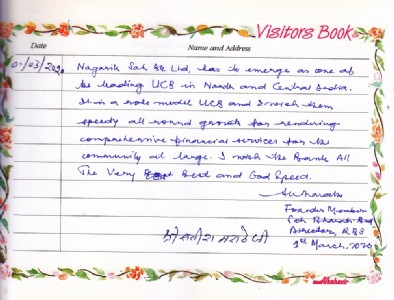 Visitors Book
Date Name and Address
01/03/2020 Nagarik Sah Bk Ltd, has to emerge as one of
the leading UCB in North and Central India.
It is a role model UCB and I wish them
speedy all round growth for rendering
comprehensive financial services for the
community at large. I wish the Bank All
The Very Best and God Speed.
Founder Member
Director, RBI
1st March, 2020
श्री सतीश मराठे जी